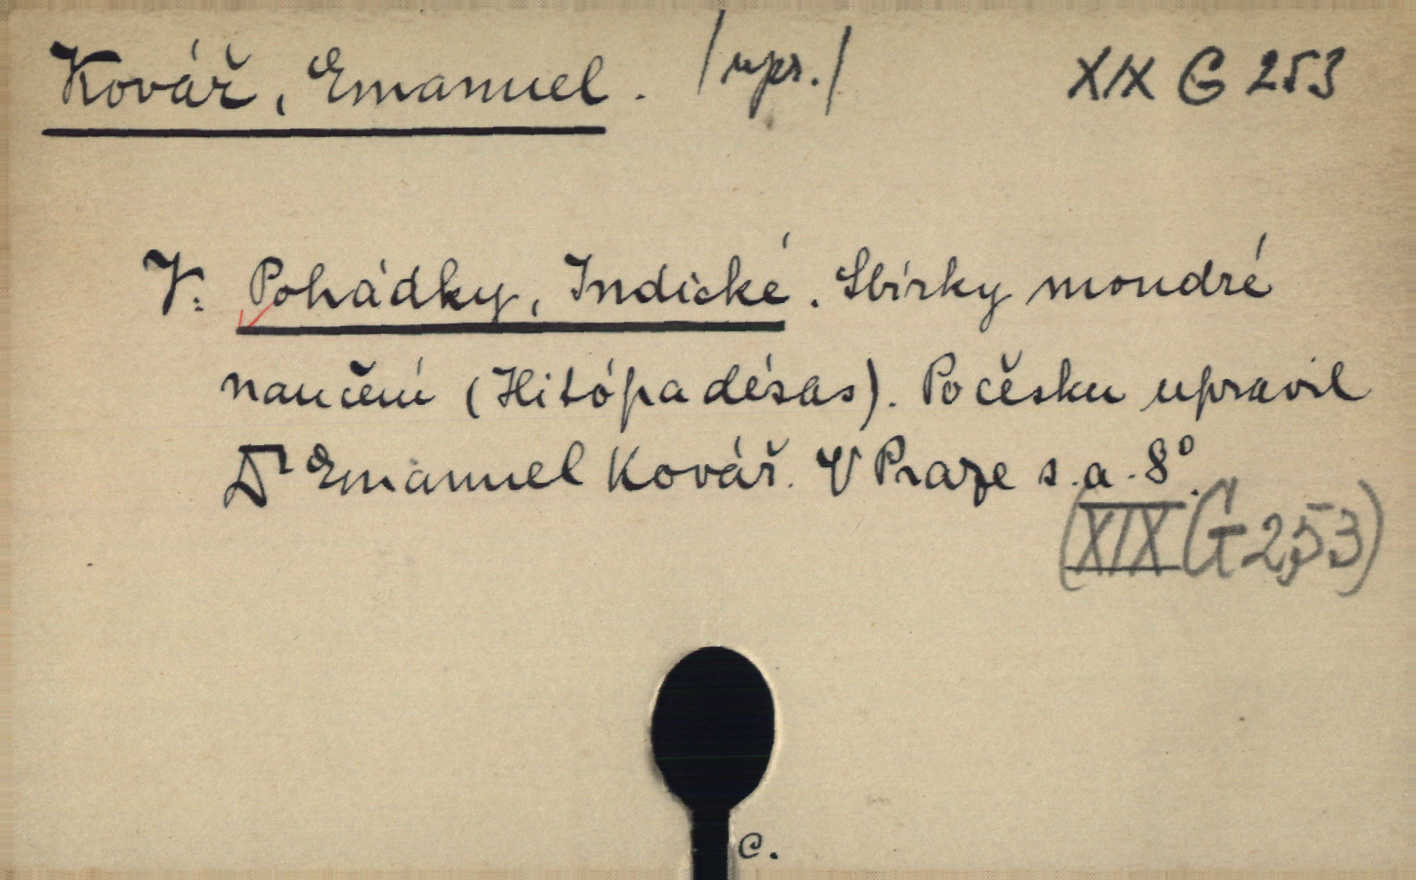 Kovář, Emanuel. /upr./ XIX G 253
V: Pohádky, Indické. Sbírky moudré
naučení (Hitópadésas). Počěsku upravil
Dr Emanuel Kovář. V Praze s.a. 8°.
(XIX G 253)
c.